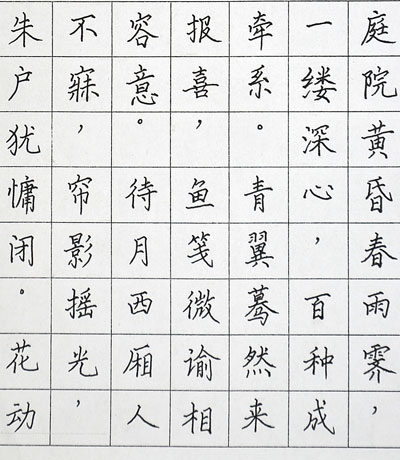 庭院黄昏春雨霁，
一缕深心，百种成
牵系。青翼蓦然来
报喜，鱼笺微谕相
容意。待月西厢人
不寐，帘影摇光，
朱户犹慵闭。花动